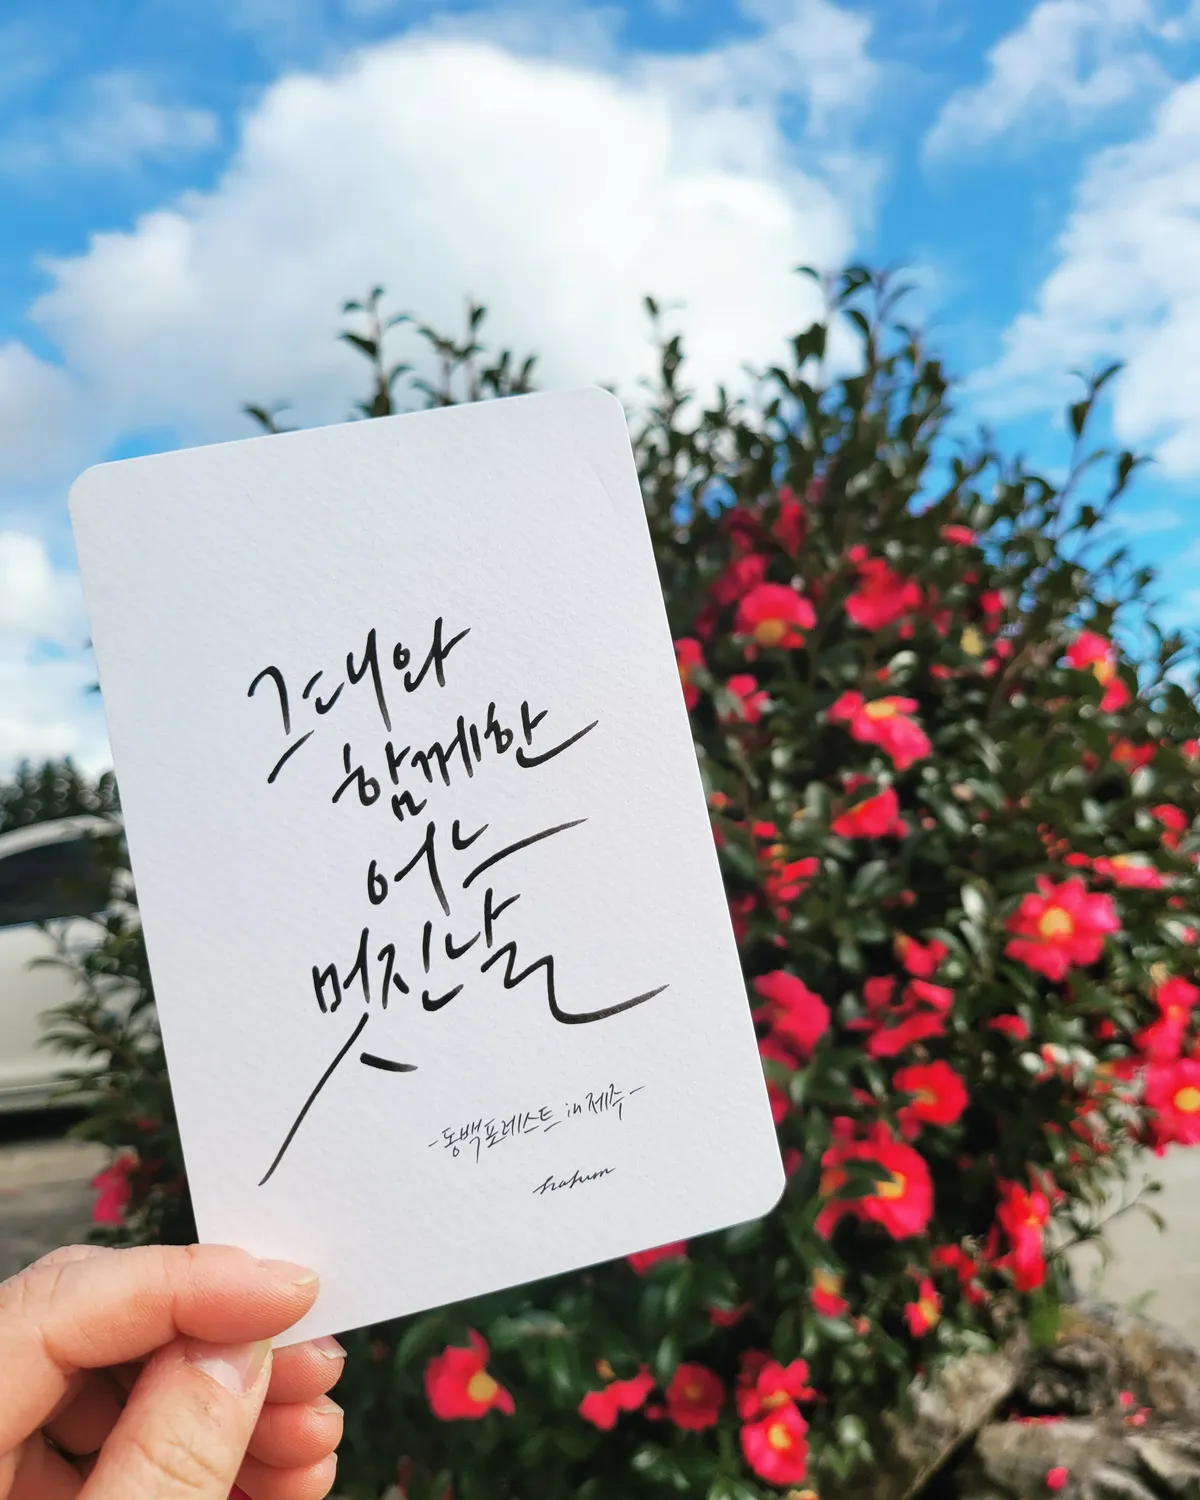 그대와
함께한
어느
멋진날
-동백포레스트 in 제주-